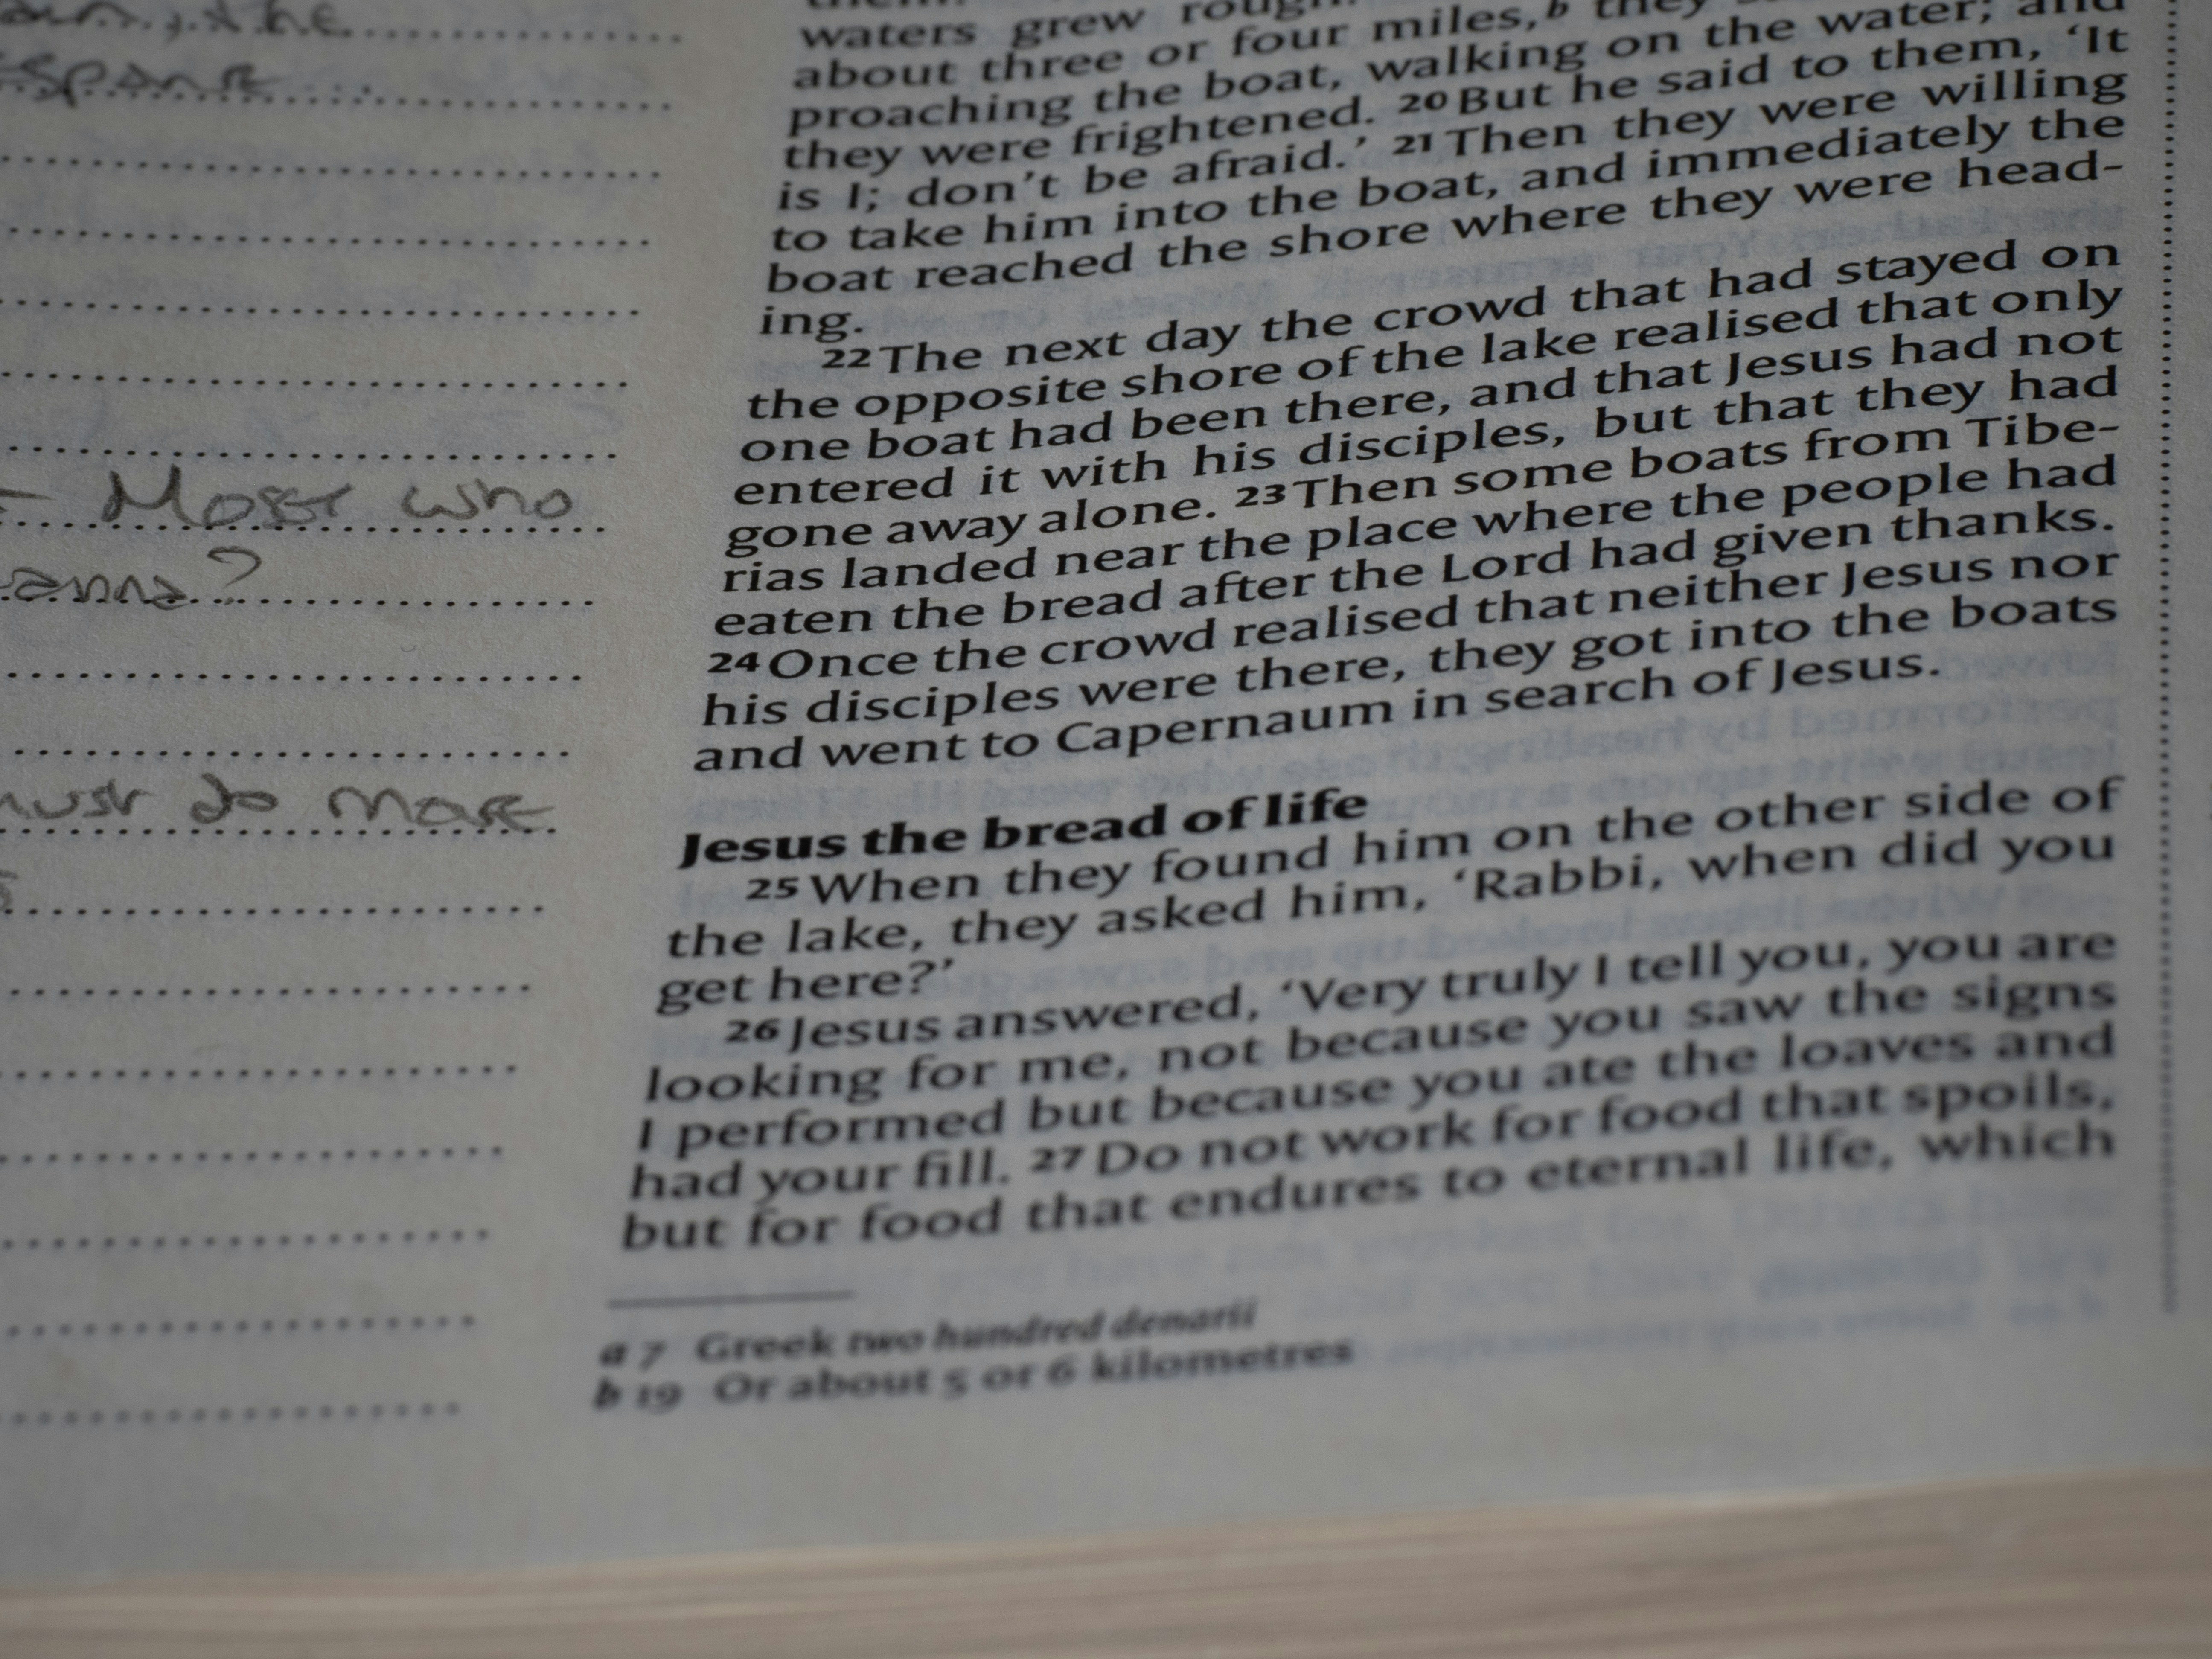 the
waters grew
about three or four miles,b they
proaching the boat, walking on the water; and
they were frightened. 20 But he said to them, ‘It
is I; don’t be afraid.’ 21 Then they were willing
to take him into the boat, and immediately the
boat reached the shore where they were head-
ing.
22 The next day the crowd that had stayed on
the opposite shore of the lake realised that only
one boat had been there, and that Jesus had not
entered it with his disciples, but that they had
gone away alone. 23 Then some boats from Tibe-
rias landed near the place where the people had
eaten the bread after the Lord had given thanks.
24 Once the crowd realised that neither Jesus nor
his disciples were there, they got into the boats
and went to Capernaum in search of Jesus.
Jesus the bread of life
25 When they found him on the other side of
the lake, they asked him, ‘Rabbi, when did you
get here?’
26 Jesus answered, ‘Very truly I tell you, you are
looking for me, not because you saw the signs
I performed but because you ate the loaves and
had your fill. 27 Do not work for food that spoils,
but for food that endures to eternal life, which
a 7 Greek two hundred denarii
b 19 Or about 5 or 6 kilometres
who
do